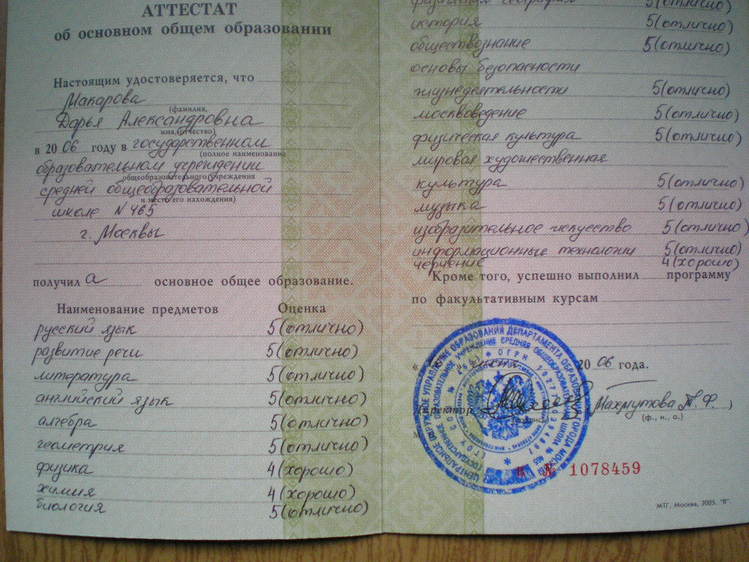 АТТЕСТАТ
об основном общем образовании
Настоящим удостоверяется, что
Макарова
(фамилия,
Дарья Александровна
имя, отчество)
в 2006 году в государственном
(полное наименование
образовательном учреждении
общеобразовательного учреждения
средней общеобразовательной
и место его нахождения)
школе N 465
г. Москвы
получила основное общее образование.
Наименование предметов Оценка
русский язык 5(отлично)
развитие речи 5(отлично)
литература 5(отлично)
английский язык 5(отлично)
алгебра 5(отлично)
геометрия 5(отлично)
физика 4(хорошо)
химия 4(хорошо)
биология 5(отлично)
физическая география 5(отлично)
история 5(отлично)
обществознание 5(отлично)
основы безопасности
жизнедеятельности 5(отлично)
москвоведение 5(отлично)
физическая культура 5(отлично)
мировая художественная
культура 5(отлично)
музыка 5(отлично)
изобразительное искусство 5(отлично)
информационные технологии 5(отлично)
черчение 4(хорошо)
Кроме того, успешно выполнил программу
по факультативным курсам
2006 года.
Директор Махмутова Т. Ф.
(ф., и., о.)
№ 1078459
МТГ, Москва, 2005, "В".